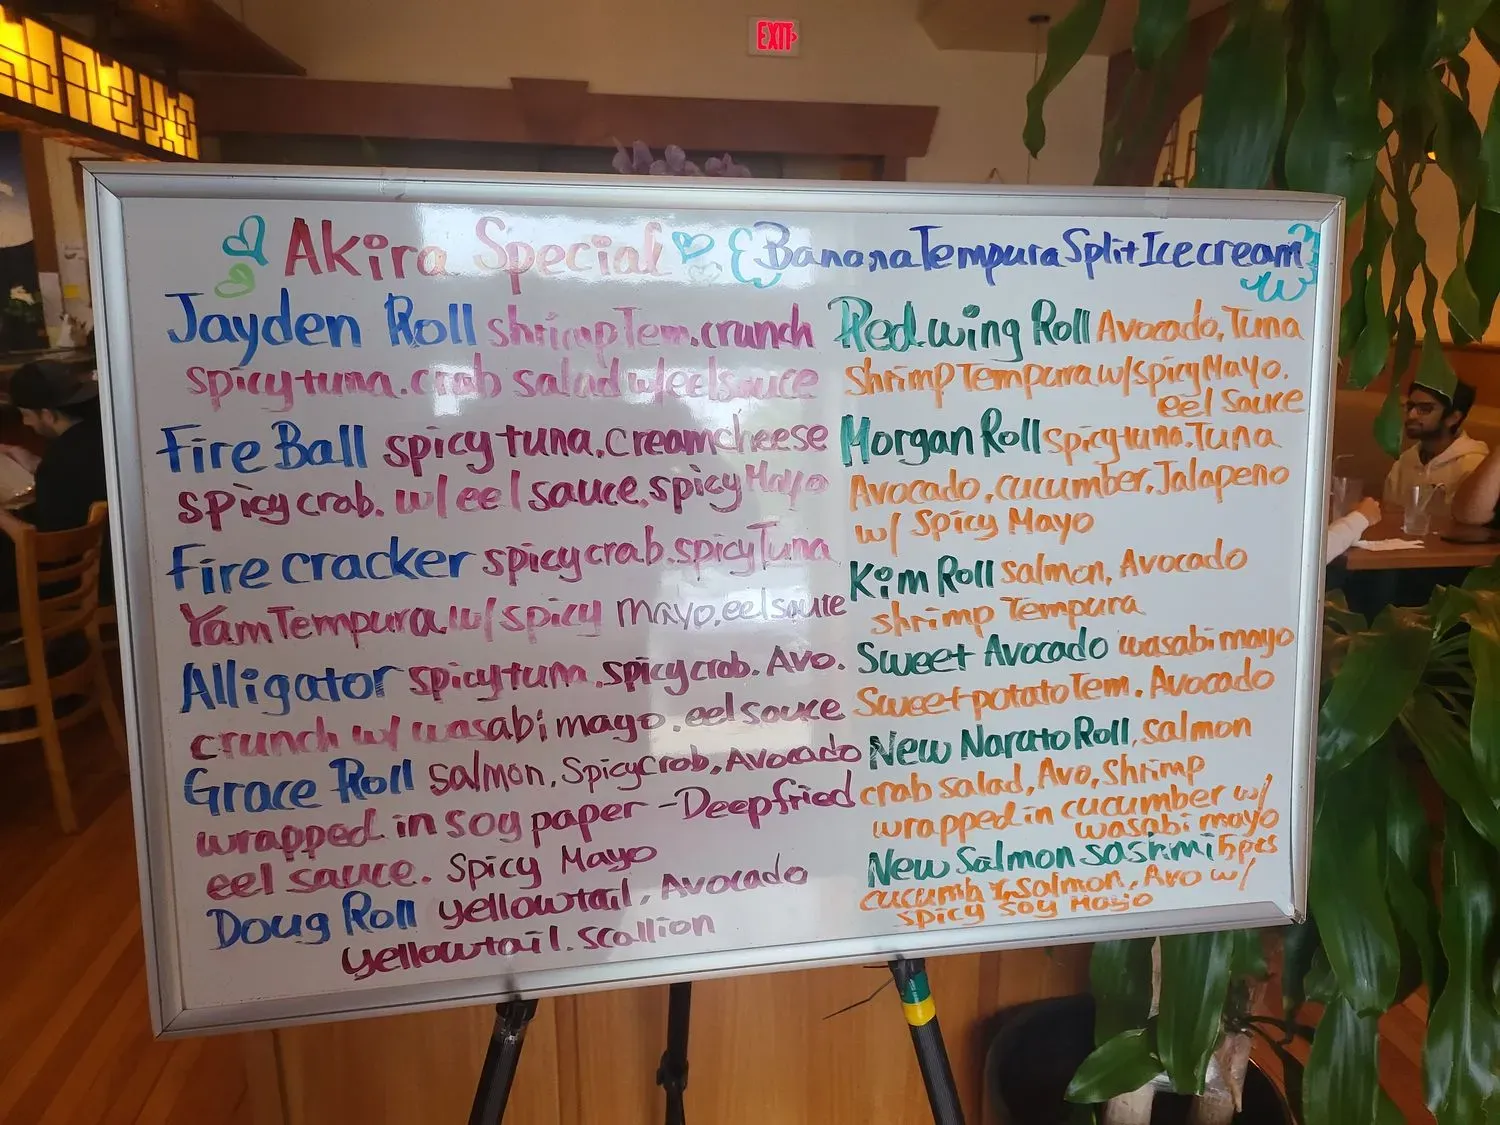 EXIT
Akira Special
Banana Tempura Split Ice cream
Jayden Roll shrimp Tem. crunch
spicy tuna. crab salad w/ eel sauce
Fire Ball spicy tuna. cream cheese
spicy crab. w/ eel sauce. spicy Mayo
Fire cracker spicy crab. spicy Tuna
Yam Tempura w/ spicy mayo. eel sauce
Alligator spicy tuna. spicy crab. Avo.
crunch w/ wasabi mayo. eel sauce
Grace Roll salmon, Spicy Crab, Avocado
wrapped in soy paper - Deep fried
eel sauce. Spicy Mayo
Doug Roll yellowtail, Avocado
yellowtail. scallion
Red wing Roll Avocado, Tuna
Shrimp Tempura w/ spicy Mayo.
eel sauce
Morgan Roll spicy tuna. Tuna
Avocado, cucumber, Jalapeno
w/ Spicy Mayo
Kim Roll salmon, Avocado
shrimp Tempura
Sweet Avocado wasabi mayo
Sweet potato Tem. Avocado
New Naruto Roll, salmon
crab salad, Avo, Shrimp
wrapped in cucumber w/
wasabi mayo
New Salmon sashimi 5pcs
salmon, Avo w/
spicy soy Mayo